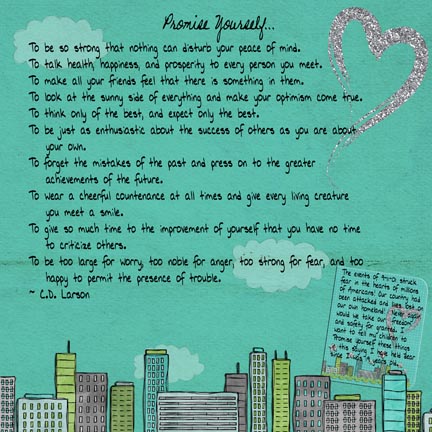 Promise Yourself...
To be so strong that nothing can disturb your peace of mind.
To talk health, happiness, and prosperity to every person you meet.
To make all your friends feel that there is something in them.
To look at the sunny side of everything and make your optimism come true.
To think only of the best, and expect only the best.
To be just as enthusiastic about the success of others as you are about
your own.
To forget the mistakes of the past and press on to the greater
achievements of the future.
To wear a cheerful countenance at all times and give every living creature
you meet a smile.
To give so much time to the improvement of yourself that you have no time
to criticize others.
To be too large for worry, too noble for anger, too strong for fear, and too
happy to permit the presence of trouble.
~ C.D. Larson
The events of 9-11-01 struck
fear in the hearts of millions
of Americans! Our country had
been attacked and lives lost on
our own homeland! Never again
would we take our freedom
and safety for granted. I
want to tell my children to
Promise yourself these things
this saying I have held dear
since I was